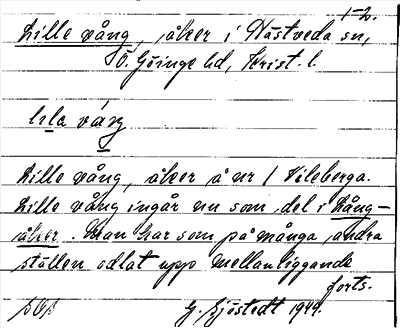 1-2.
Lille vång, åker i Hästveda sn,
Ö. Göinge hd, Krist. l.
lila våŋ
Lille vång, åker å nr 1 Vileberga.
Lille vång ingår nu som del i Lång-
åker. Man har som på många andra
ställen odlat upp mellanliggande
forts.
G. Sjöstedt 1944.